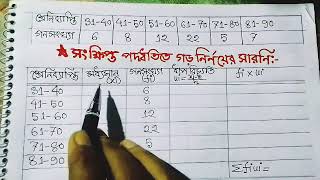 শ্রেনিব্যাপ্তি 31-40 41-50 51-60 61-70 71-80 81-90
গনসংখ্যা 6 8 12 22 5 7
★ সংক্ষিপ্ত পদ্ধতিতে গড় নির্নয়ের সারনি:-
শ্রেনিব্যাপ্তি মধ্যমান (xi) গনসংখ্যা (fi) ধাপ বিচ্যুতি fi × ui
31-40 6
41-50 8
51-60 12
61-70 22
71-80 5
81-90 Σfiui=